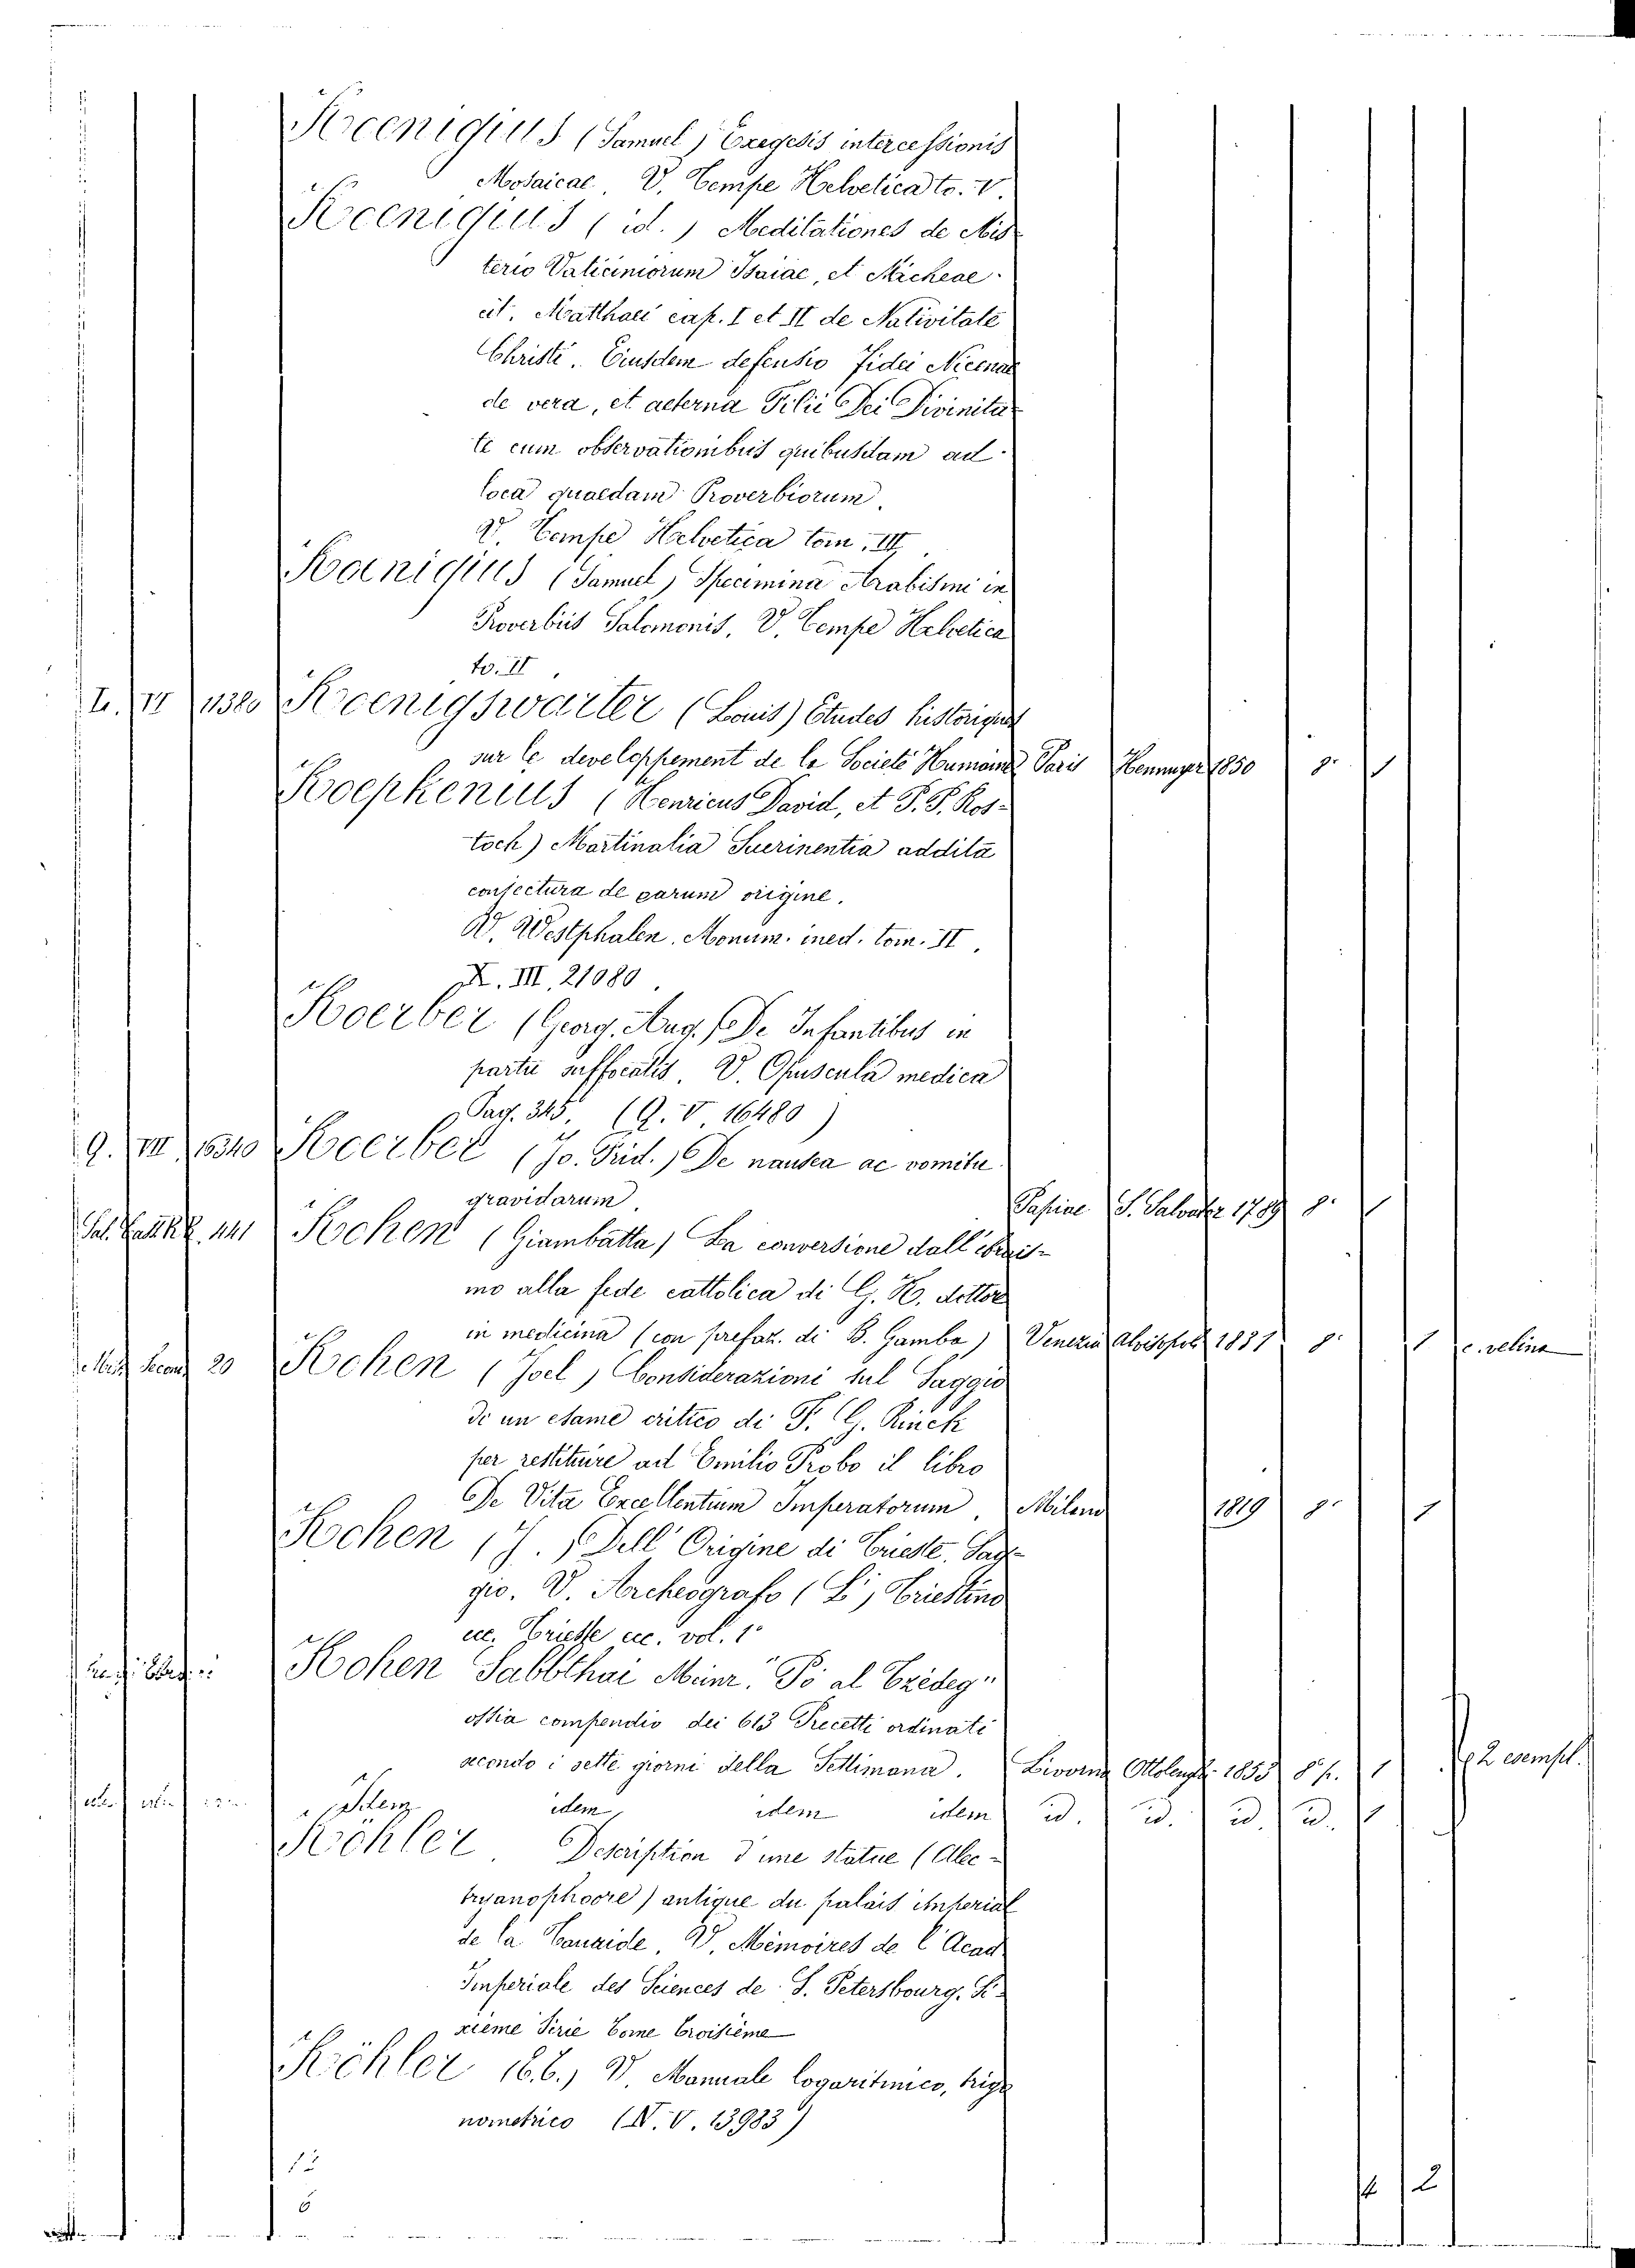 Koenigius (Samuel) Exegesis intercessionis
Mosaicae. V. Tempe Helvetica to. V.
Koenigius (id.) Meditationes de Mis
terio Vaticiniorum Isaiae, et Micheae
cit. Matthaei cap. I et II de Nativitate
Christi. Eiusdem defensio fidei Nicenae
de vera, et aeterna Filii Dei Divinita
te cum observationibus quibusdam ad
loca quaedam Proverbiorum.
V. Tempe Helvetica tom. III.
Koenigius (Samuel) Specimina Arabismi in
Proverbiis Salomonis, V. Tempe Helvetica
to. II
L. VI 11380 Koenigswarter (Louis) Etudes historiques
sur le developpement de la Societé Humaine Paris Hennuyer 1850 8° 1
Koepkenius (Henricus David, et P. P. Ros-
toch) Martinalia Suerinentia addita
coniectura de earum origine.
V. Westphalen. Monum. ined. tom. II.
X. III. 21080.
Koerber (Georg. Aug.) De Infantibus in
partu suffocatis. V. Opuscula medica
Pag. 345. (Q. V 16480)
Q. VII 16340 Koerber (Jo. Frid.) De nausea ac vomitu
gravidarum. Papiae S. Salvator 1789 8° 1
441 Kohen (Giambatta) La conversione dall'ebrais-
mo alla fede cattolica di G. K. dottore
in medicina (con prefaz. di B. Gamba) Venezia Alvisopoli 1831 8° 1 c. velina
20 Kohen (Joel) Considerazioni sul Saggio
di un esame critico di F. G. Rinck
per restituire ad Emilio Probo il libro
De Vita Excellentium Imperatorum. Milano 1819 8° 1
Kohen (J.) Dell'Origine di Trieste. Sag-
gio. V. Archeografo (L') Triestino
ec. Trieste ec. vol. 1°
Kohen Sabbthai Meinr. "Po al Ezideg"
ossia compendio dei 613 Precetti ordinati
secondo i sette giorni della Settimana. Livorno Ottolenghi 1853 8° p. 1 2 esempl.
Idem idem, idem idem id. id. id. id. 1
Köhler. Description d'une statue (Alec-
tryanophoore) antique du palais imperial
de la Tauride. V. Mémoires de l'Acad
Imperiale des Sciences de S. Petersbourg. Si-
xieme Serie Tome troisième
Köhler (C. C.) V. Manuale logaritmico, trigo
nometrico (N. V. 13983)
12
6
4 2